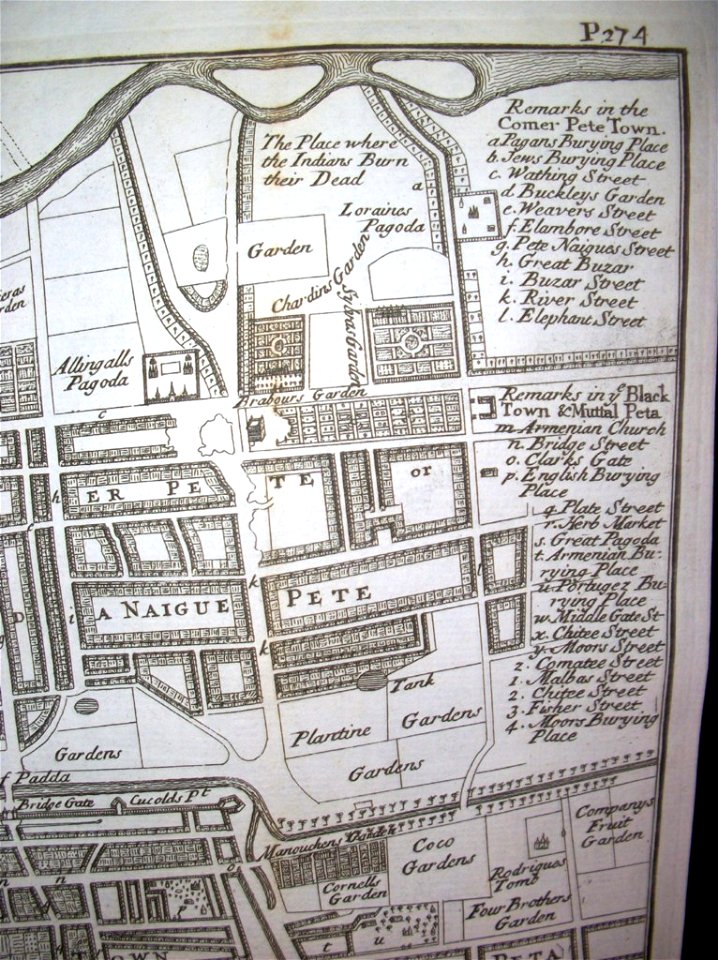 P.274
Remarks in the
Comer Pete Town.
a. Pagans Burying Place
b. Jews Burying Place
c. Wathing Street
d. Buckleys Garden
e. Weavers Street
f. Elambore Street
g. Pete Naigues Street
h. Great Buzar
i. Buzar Street
k. River Street
l. Elephant Street
The Place where
the Indians Burn
their Dead
a
Loraines
Pagoda
Garden
Chardins Garden
Garden
Allingalls
Pagoda
Brabours Garden
c
Remarks in yᵉ Black
Town & Muttal Peta
m. Armenian Church
n. Bridge Street
o. Clarks Gate
p. English Burying
Place
q. Plate Street
r. Herb Market
s. Great Pagoda
t. Armenian Bu-
rying Place
u. Portugez Bu-
rying Place
w. Middle Gate St
x. Chitee Street
y. Moors Street
z. Comatee Street
1. Malbas Street
2. Chitee Street
3. Fisher Street
4. Moors Burying
Place
h
ER PE TE or
f
k
l
D
i
A NAIGUE PETE
k
Tank
Gardens
Plantine
Gardens
Gardens
f Padda
Bridge Gate
Cucolds Pt
Manouchens Garden
Coco
Gardens
Companys
Fruit
Garden
Cornells
Garden
Rodrigues
Tomb
Four Brothers
Garden
n
q
p
o
t
u
TOWN
PETA